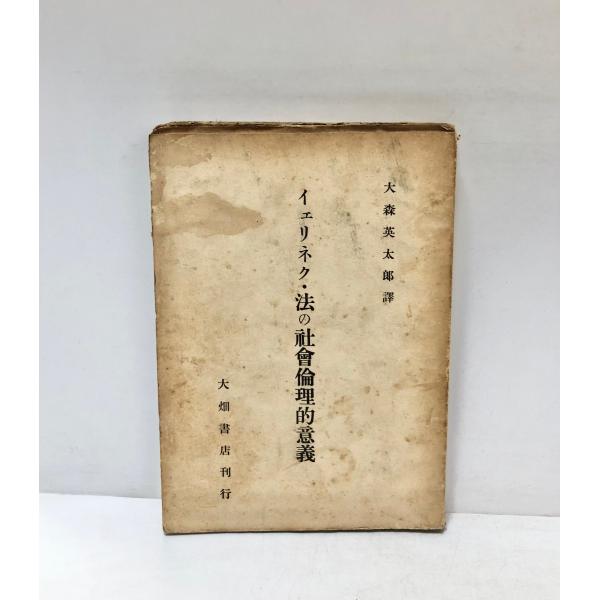 大森英太郎譯
イェリネク・法の社會倫理的意義
大畑書店刊行